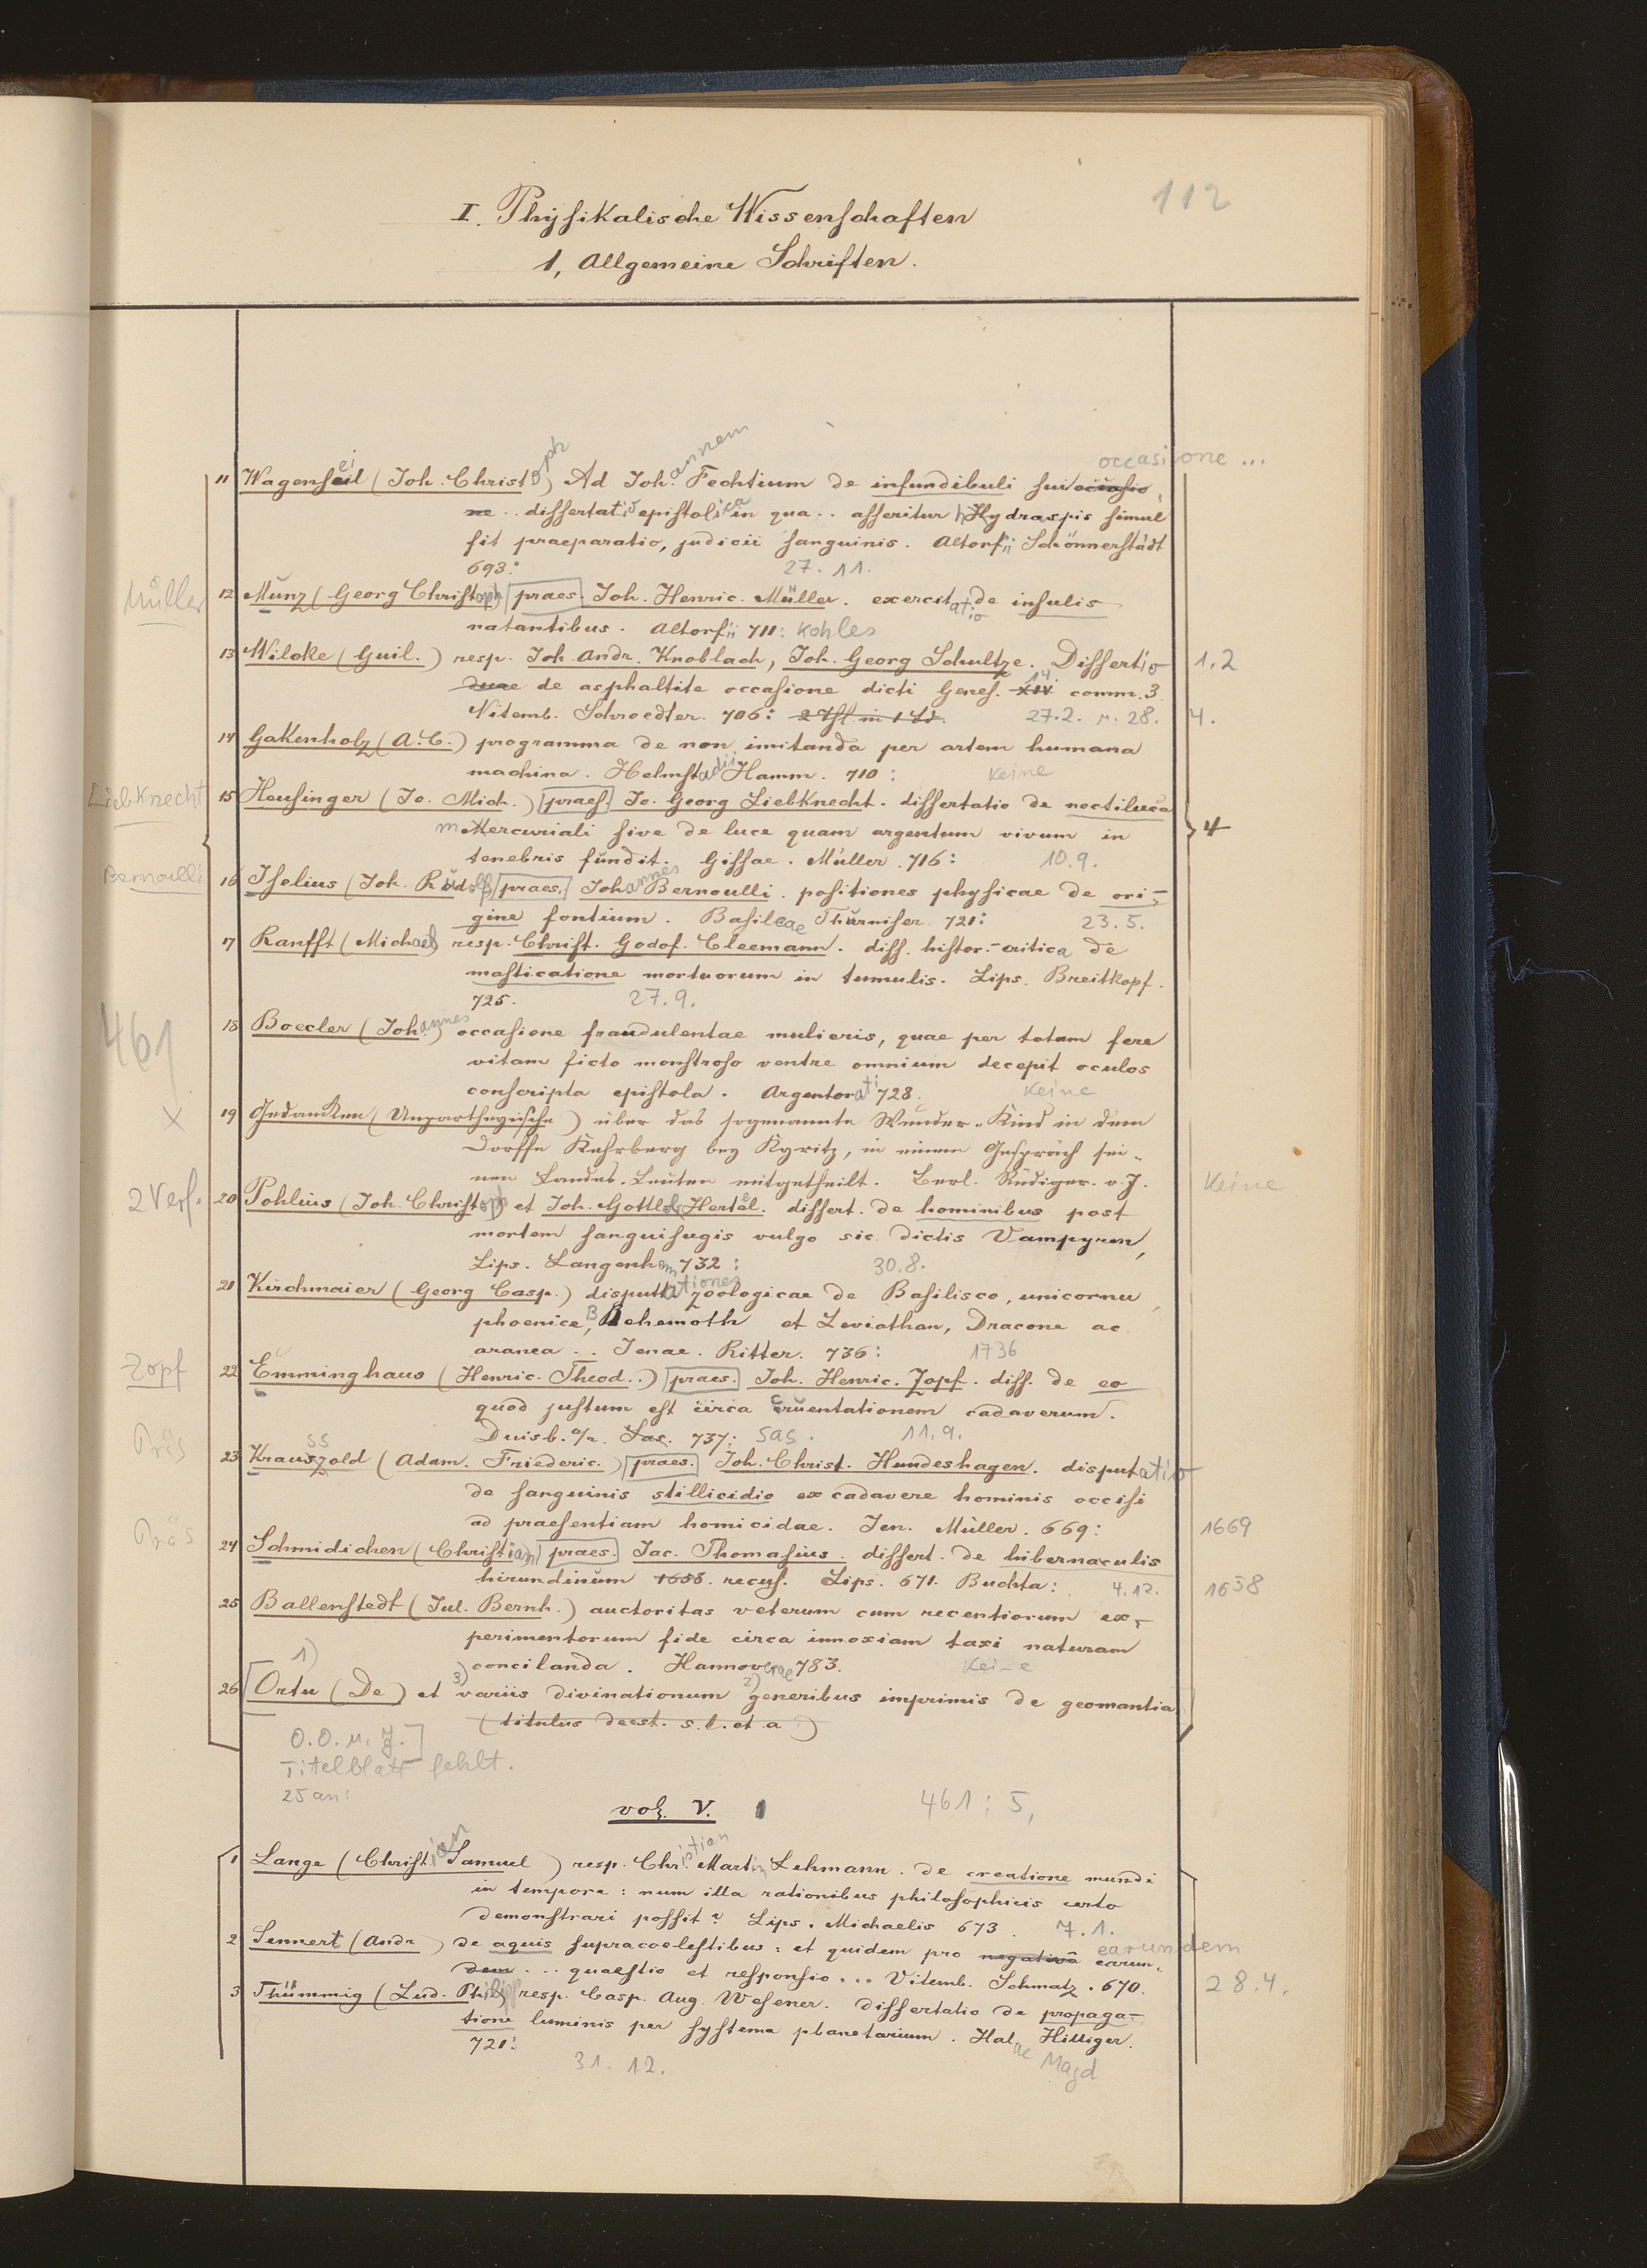 112
I. Physikalische Wissenschaften
1, Allgemeine Schriften.
occasione ...
11 Wagenseil (Joh. Christoph) Ad Joh.annem Fechtium de infundibuli sui occasio,
ne .. dissertatio epistolica in qua .. asseritur hHydraspis simul
fit praeparatio, judicii sanguinis. Altorfii Schönnerstädt
693: 27. 11.
Müller
12 Münz (Georg Christoph) praes. Joh. Henric. Müller. exercitatio de insulis
natantibus. Altorfii 711: Kohles
13 Wilcke (Guil.) resp. Joh. Andr. Knoblach, Joh. Georg Schultze. Dissertio 1.2
duae de asphaltite occasione dicti Genes. XIV 14 comm. 3
Vitemb. Schroedter. 706: 2 Thl in 1 Bd. 27.2. u. 28. 4.
14 Gakenholz (A. C.) programma de non imitanda per artem humana
machina. Helmstadii Hamm. 710: Keine
Liebknecht
15 Heusinger (Jo. Mich.) praes. Jo. Georg Liebknecht. dissertatio de noctiluca
mMercuriali sive de luce quam argentum vivum in 4
tenebris fundit. Gissae. Müller. 716: 10.9.
Bernoulli
16 Iselius (Joh. Rudolf) praes. Johannes Bernoulli. positiones physicae de ori-
gine fontium. Basileae Thurniser. 721: 23.5.
17 Ranfft (Michael) resp. Christ. Godof. Cleemann. diss. histor.-critica de
masticatione mortuorum in tumulis. Lips. Breitkopf.
725. 27.9.
461
18 Boecler (Johannes) occasione fraudulentae mulieris, quae per totam fere
vitam ficto monstroso ventre omnium decepit oculos
conscripta epistola. Argentorati 728. Keine
X
19 Gedancken (Unpartheyische) über das sogenannte Wunder-Kind in dem
Dorffe Kehrberg bey Kyritz, in einem Gespräch sei-
nen Landes-Leuten mitgetheilt. Berl. Rüdiger. o. J. Keine
2 Verf.
20 Pohlius (Joh. Christoph) et Joh. Gottlob Hertel. dissert. de hominibus post
mortem sanguisugis vulgo sic dictis Vampyren,
Lips. Langenhem 732: 30.8.
21 Kirchmaier (Georg Casp.) disputationes zoologicae de Basilisco, unicornu,
phoenice, Behemoth et Leviathan, Dracone ac
aranea .. Jenae. Ritter. 736: 1736
Zopf
22 Emminghaus (Henric. Theod..) praes. Joh. Henric. Zopf. diss. de eo
quod justum est circa cruentationem cadaverum.
Duisb. a/R. Sas. 737: Sas. 11.9.
Präs
23 Krauszold ss (Adam. Friederic.) praes. Joh. Christ. Hundeshagen. disputatio
de sanguinis stillicidio ex cadavere hominis occisi
ad praesentiam homicidae. Jen. Müller. 669: 1669
Präs
24 Schmidichen (Christian) praes. Jac. Thomasius. dissert. de hibernaculis
hirundinum 1658. recus. Lips. 671. Buchta: 4.12. 1658
25 Ballenstedt (Jul. Bernh.) auctoritas veterum cum recentiorum ex-
perimentorum fide circa innoxiam taxi naturam
concilanda. Hannoverae 783. Keine
1) 3) 2)
26 [Ortu (De) et variis divinationum generibus imprimis de geomantia
(titulus deest. s. l. et a)
O.O. u. J.]
Titelblatt fehlt.
25 an:
vol. V. 461 : 5,
1 Lange (Christian Samuel) resp. Christian Martin Lehmann. de creatione mundi
in tempore: num illa rationibus philosophicis certo
demonstrari possit? Lips. Michaelis 673. 7.1.
2 Sennert (Andr) de aquis supracoelestibus: et quidem pro negativâ earun- earundem
dem ... quaestio et responsio... Vitemb. Schmatz. 670. 28.4.
3 Thümmig (Lud. Philipp) resp. Casp. Aug. Wesener. Dissertatio de propaga-
tione luminis per systema planetarium. Halae Magd Hilliger.
721: 31. 12.